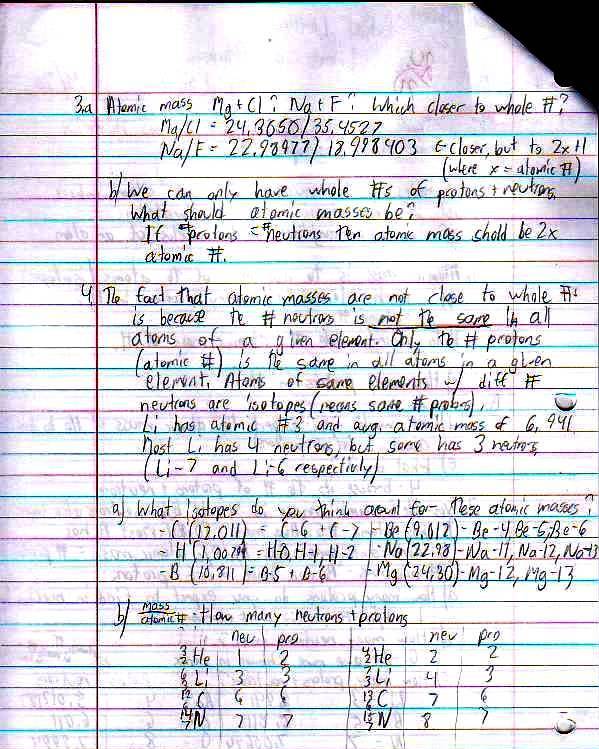 3.a Atomic mass Mg + Cl? Na + F? Which closer to whole #?
Mg/Cl = 24.3050/35.4527
Na/F = 22.98977/18.998403 ← closer, but to 2x+1
(where x = atomic #)
b) We can only have whole #s of protons + neutrons.
What should atomic masses be?
If # protons = # neutrons then atomic mass shold be 2x
atomic #.
4. The fact that atomic masses are not close to whole #s
is because the # neutrons is not the same in all
atoms of a given element. Only the # protons
(atomic #) is the same in all atoms in a given
element. Atoms of same elements w/ diff #
neutrons are isotopes (means same # protons).
Li has atomic #3 and avg. atomic mass of 6.941
Most Li has 4 neutrons, but some has 3 neutrons
(Li-7 and Li-6 respectivly)
a) What isotopes do you think account for these atomic masses?
- C (12.011) = C-6 + C-7 - Be (9.012) - Be-4 Be-5, Be-6
- H (1.00794) = H-0, H-1, H-2 - Na (22.98) - Na-11, Na-12, Na-13
- B (10.811) = B-5 + B-6 - Mg (24.30) - Mg-12, Mg-13
b) mass/atomic # - How many neutrons + protons
neu pro neu pro
3/2 He 1 2 4/2 He 2 2
6/3 Li 3 3 7/3 Li 4 3
12/6 C 6 6 13/6 C 7 6
14/7 N 7 7 15/7 N 8 7